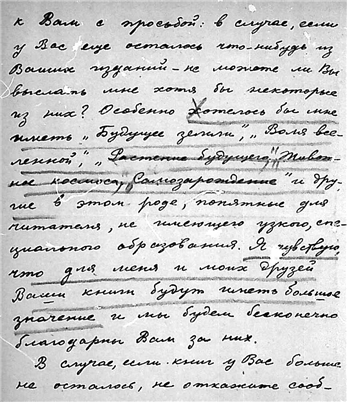 к Вам с просьбой: в случае, если
у Вас еще осталось что-нибудь из
Ваших изданий – не можете ли Вы
выслать мне хотя бы некоторые
из них? Особенно хотелось бы мне
иметь „Будущее земли", „Воля все-
ленной", „Растение будущего", „Живот-
ное космоса", „Самозарождение" и дру-
гие в этом роде, понятные для
читателя, не имеющего узкого, спе-
циального образования. Я чувствую,
что для меня и моих друзей
Ваши книги будут иметь большое
значение и мы будем бесконечно
благодарны Вам за них.
В случае, если книг у Вас больше
не осталось, не откажите сооб-